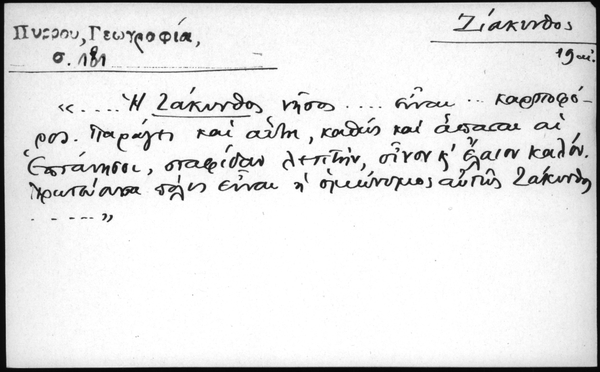 Πύρρου, Γεωγραφία,
σ. 181
Ζάκυνθος
19 αἰ.
«.... Ἡ Ζάκυνθος νῆσος .... εἶναι .. καρποφό-
ρος. Παράγει καὶ αὐτή, καθὼς καὶ ἅπασαι αἱ
Ἑπτάνησοι, σταφίδαν λεπτήν, οἶνον κ' ἔλαιον καλόν.
Πρωτεύουσα πόλις εἶναι ἡ ὁμώνυμος αὐτῆς Ζάκυνθος
.....»